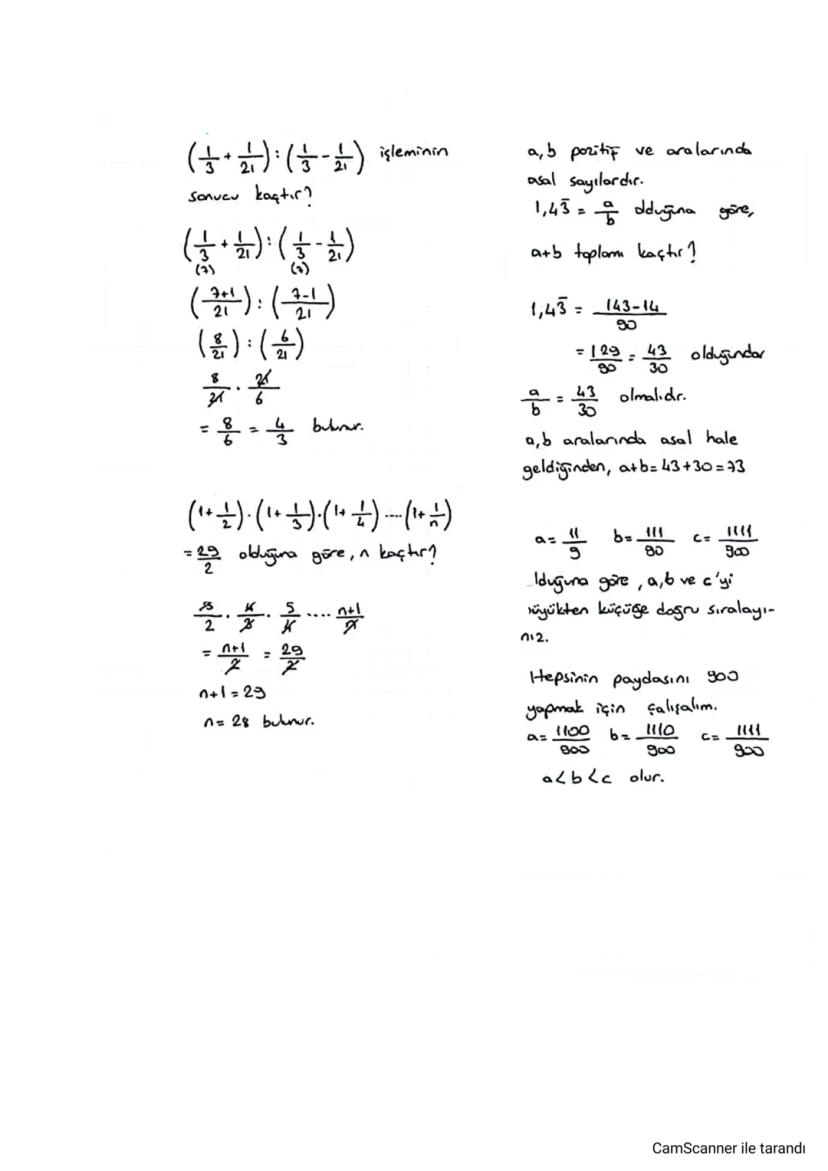 (1/3 + 1/21) : (1/3 - 1/21) işleminin
sonucu kaçtır?
(1/3 + 1/21) : (1/3 - 1/21)
(7) (7)
(7+1/21) : (7-1/21)
(8/21) : (6/21)
8/21 · 21/6
= 8/6 = 4/3 bulunur.
(1+1/2)·(1+1/3)·(1+1/4)....(1+1/n)
= 29/2 olduğuna göre, n kaçtır?
3/2 · 4/3 · 5/4 .... n+1/n
= n+1/2 = 29/2
n+1=29
n=28 bulunur.
a,b pozitif ve aralarında
asal sayılardır.
1,43̅ = a/b olduğuna göre,
a+b toplamı kaçtır?
1,43̅ = 143-14/90
= 129/90 = 43/30 olduğundan
a/b = 43/30 olmalıdır.
a,b aralarında asal hale
geldiğinden, a+b=43+30=73
a= 11/9 b= 111/90 c= 1111/900
lduğuna göre, a,b ve c'yi
üyükten küçüğe doğru sıralayı-
nız.
Hepsinin paydasını 900
yapmak için çalışalım.
a= 1100/900 b= 1110/900 c= 1111/900
a<b<c olur.
CamScanner ile tarandı